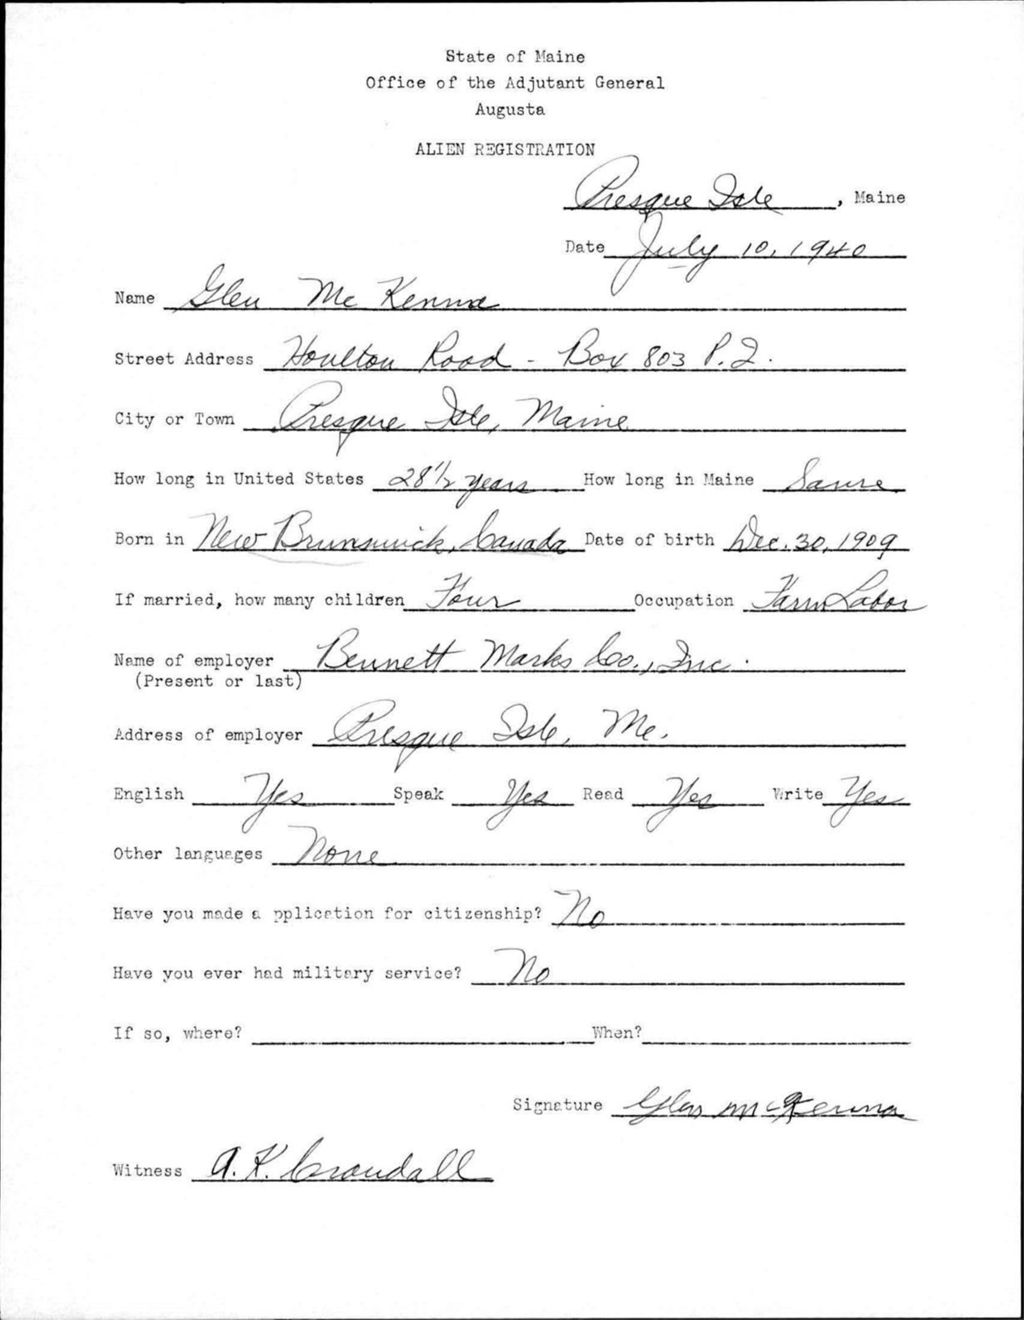 State of Maine
Office of the Adjutant General
Augusta
ALIEN REGISTRATION
Presque Isle, Maine
Date July 10, 1940
Name Glen McKenna
Street Address Houlton Road - Box 803 P.I.
City or Town Presque Isle, Maine
How long in United States 28 1/2 years How long in Maine Same
Born in New Brunswick, Canada Date of birth Dec. 30, 1909
If married, how many children Four Occupation Farm Labor
Name of employer Bennett Marks Co., Inc.
(Present or last)
Address of employer Presque Isle, Me.
English Yes Speak Yes Read Yes Write Yes
Other languages None
Have you made a pplication for citizenship? No
Have you ever had military service? No
If so, where? When?
Signature Glen McKenna
Witness A. K. Crandall